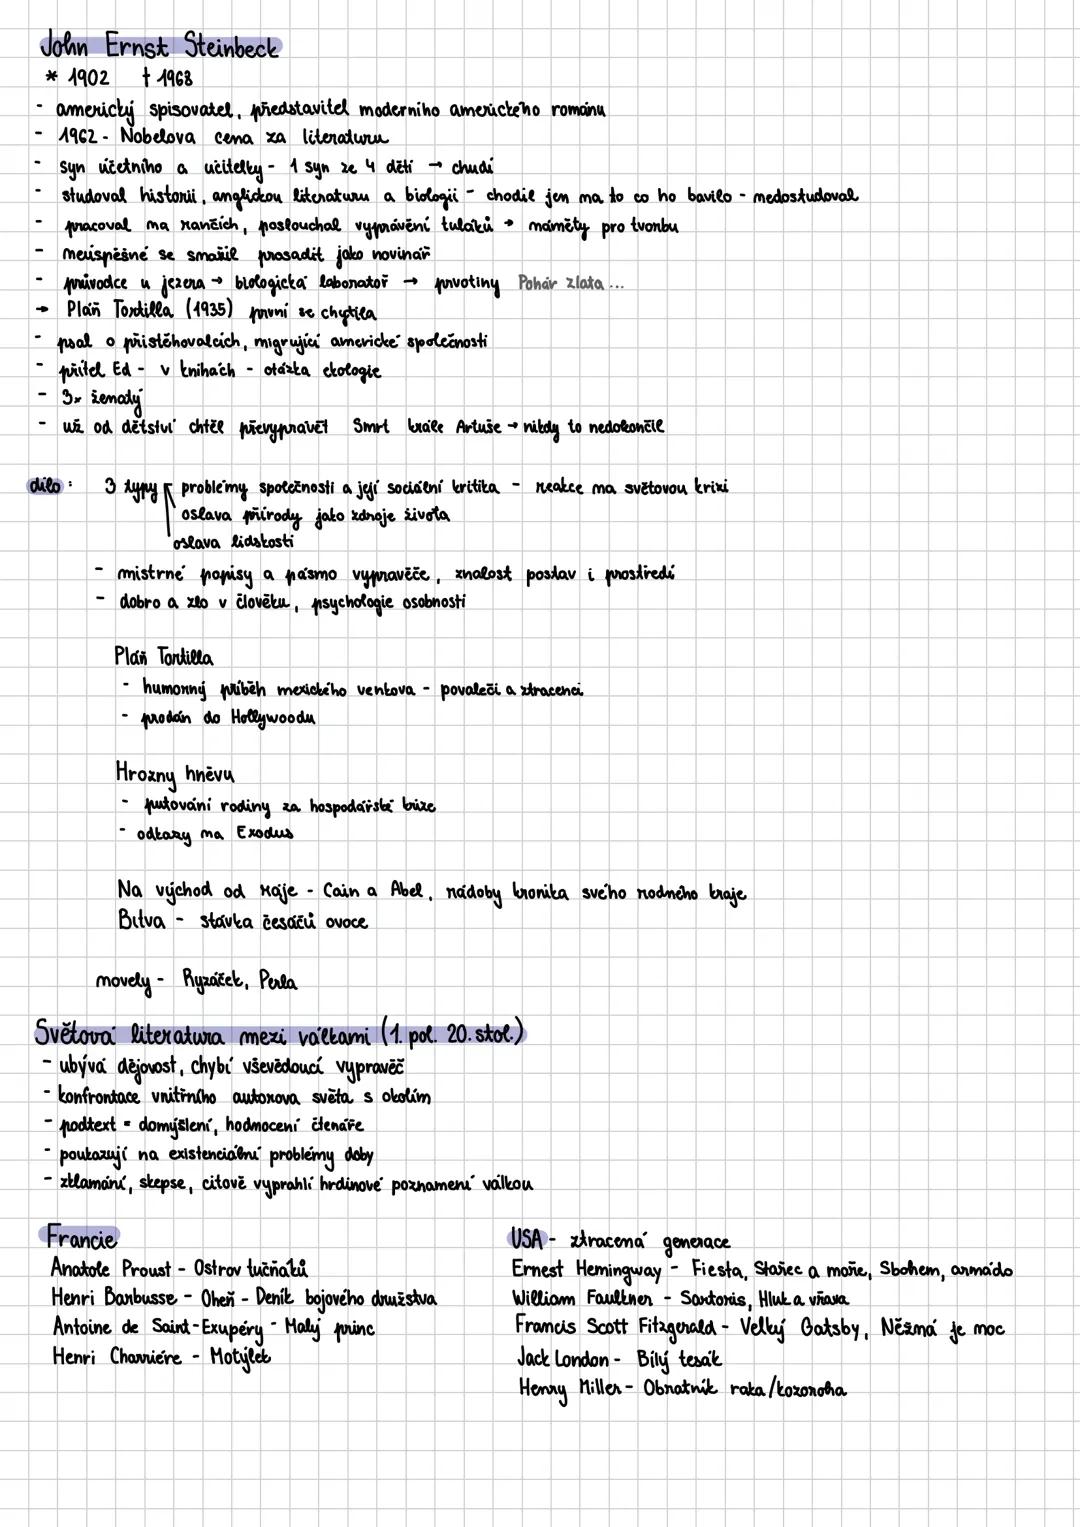 John Ernst Steinbeck
* 1902 † 1968
- americký spisovatel, představitel moderního amerického románu
- 1962 - Nobelova cena za literaturu
- syn účetního a učitelky - 1 syn ze 4 dětí → chudí
- studoval historii, anglickou literaturu a biologii - chodil jen na to co ho bavilo - nedostudoval
- pracoval na rančích, poslouchal vyprávění tuláků → náměty pro tvorbu
- neúspěšně se snažil prosadit jako novinář
- průvodce u jezera → biologická laboratoř → prvotiny Pohár zlata ...
→ Pláň Tortilla (1935) první se chytila
- psal o přistěhovalcích, migrující americké společnosti
- přítel Ed - v knihách - otázka ekologie
- 3x ženatý
- už od dětství chtěl převyprávět Smrt krále Artuše → nikdy to nedokončil
dílo: 3 typy problémy společnosti a její sociální kritika - reakce na světovou krizi
oslava přírody jako zdroje života
oslava lidskosti
- mistrné popisy a pásmo vypravěče, znalost postav i prostředí
- dobro a zlo v člověku, psychologie osobnosti
Pláň Tortilla
- humorný příběh mexického venkova - povaleči a ztracenci
- prodán do Hollywoodu
Hrozny hněvu
- putování rodiny za hospodářské krize
- odkazy na Exodus
Na východ od ráje - Cain a Abel, nádoby kronika svého rodného kraje
Bitva - stávka česáčů ovoce
novely - Ryzáček, Perla
Světová literatura mezi válkami (1. pol. 20. stol.)
- ubývá dějovost, chybí vševědoucí vypravěč
- konfrontace vnitřního autorova světa s okolím
- podtext = domýšlení, hodnocení čtenáře
- poukazují na existenciální problémy doby
- zklamání, skepse, citově vyprahlí hrdinové poznamení válkou
Francie
Anatole Proust - Ostrov tučňáků
Henri Barbusse - Oheň - Deník bojového družstva
Antoine de Saint-Exupéry - Malý princ
Henri Charriére - Motýlek
USA - ztracená generace
Ernest Hemingway - Fiesta, Stařec a moře, Sbohem, armádo
William Faulkner - Sartoris, Hluk a vřava
Francis Scott Fitzgerald - Velký Gatsby, Něžná je noc
Jack London - Bílý tesák
Henry Miller - Obratník raka/kozoroha